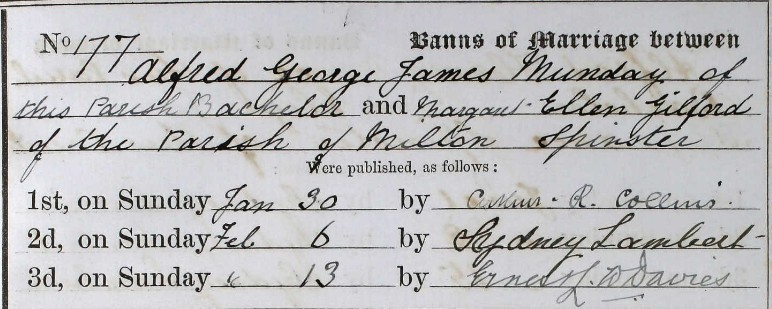 No 177 Banns of Marriage between
Alfred George James Munday of
this Parish Bachelor and Margaret Ellen Gilford
of the Parish of Milton Spinster
Were published, as follows:
1st, on Sunday Jan 30 by Arthur R. Collins.
2d, on Sunday Feb 6 by Sydney Lambert
3d, on Sunday " 13 by Ernest D Davies